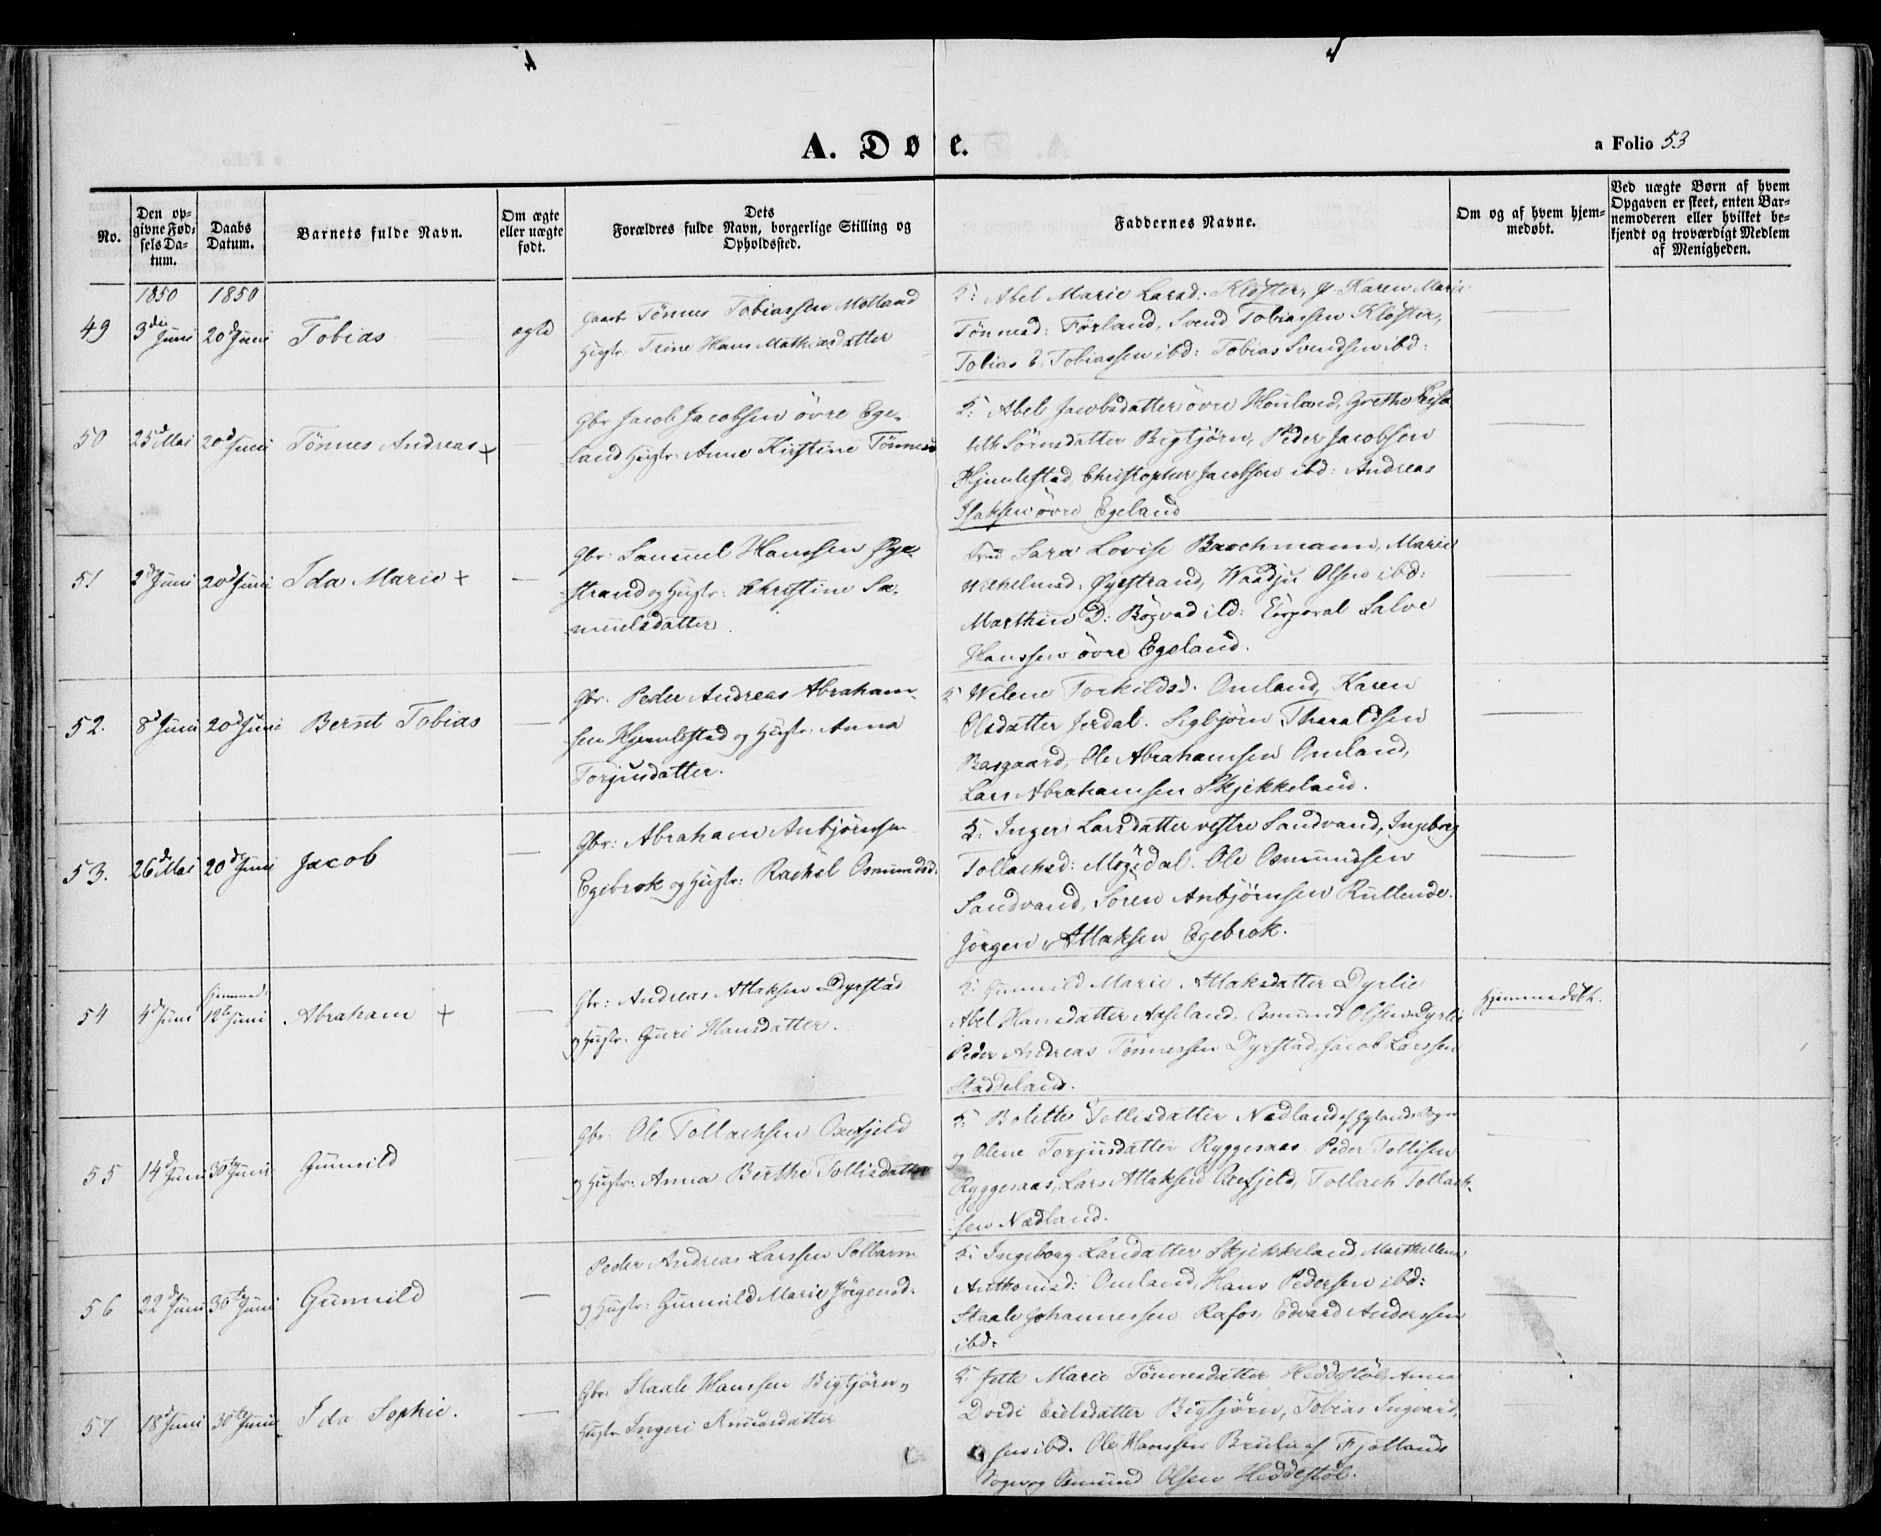 A. Døbte.
a Folio 53
No.
Den opgivne Fødselsdatum.
Daabs Datum.
Barnets fulde Navn.
Om ægte eller uægte født.
Dets Forældres fulde Navn, borgerlige Stilling og Opholdssted.
Faddernes Navne.
Om og af hvem hjemmedøbt.
Ved uægte Børn af hvem Opgaven er skeet, enten Barnemoderen eller hvilket bekjendt og troværdigt Medlem af Menigheden.
1850 1850
49 3die Juni 20d Juni Tobias ægte
Tønnes Tobiassen Motland
Hustr: Trine Hans Mathiasdatter
Q: Abel Marie Larsd: Kloster, J. Karen Marie
Tønnesd: Førland, Svend Tobiassen Kloster,
Tobias E: Tobiassen ibd: Tobias Svendsen ibd:
50 25d Mai 20d Juni Tønnes Andreas +
Gbr Jacob Jacobsen övre Ege-
land Hustr: Anne Kirstine Tönnesd
Q: Abel Jacobsdatter övre Houland, Grethe Elisa
beth Sörnsdatter Bigtjörn, Peder Jacobsen
Hjemlestad, Christopher Jacobsen ibd: Andreas
Isaksen övre Egeland
51 2d Juni 20d Juni Ida Marie +
Gbr: Samuel Hanssen Øye-
strand og Hustr: Christine Sa-
muelsdatter.
Sara Lovise Brochmann, Marie
Wilhelmsd: Øyestrand, Olsen ibd:
Marthin D: ibd: Corporal Salve
Hanssen övre Egeland.
52. 8d Juni 20d Juni Bernt Tobias
Gbr. Peder Andreas Abraham-
sen Hjemlestad og Hustr: Anna
Torjusdatter.
Q Welene Torkildsd. Omland, Karen
Olsdatter Jerdal. Sigbjörn Theraldsen
Basgaard, Ole Abrahamsen Omland,
Lars Abrahamsen Skjekkeland.
53. 26d Mai 20d Juni Jacob
Gbr: Abraham Anbjörnsen
Egebrok og Hustr: Rachel Osmundsd.
Q: Ingeri Larsdatter vestre Sandvand, Ingeborg
Tollachsd: Møgedal. Ole Osmundsen
Sandvand, Soren Anbjørnsen Rullende.
Jörgen Atlaksen Egebrok.
54 4d Juni 12te Juni Abraham +
Gbr: Andreas Atlaksen Dyrstad
og Hustr. Guri Hansdatter.
Q: Gunvild Marie Atlaksdatter Dyrlie
Abel Hansdatter Aaseland. Osmund Olsen Dyrlie
Peder Andreas Tönnessen Dyrstad, Jacob Larssen
Staddeland.
Hjemmedöbt.
55 14d Juni 30te Juni Gunvild
Gbr: Ole Tollachsen Oxefjeld
og Hustr: Anna Berthe Tollisdatter
Q: Bolette Tollisdatter Nædland af Gylands Sogn
og Olene Torjusdatter Ryggesaas Peder Tollisen
Ryggesaas, Lars Atlaksen Oxefjeld, Tollach Tollach-
sen Nædland.
56 22d Juni 30te Juni Gunvild
Peder Andreas Larssen Solbarm
og Hustr: Gunvild Marie Jörgensd:
Q: Ingeborg Larsdatter Skjekkeland, Marthe
Anthonisd: Omland, Hans Pedersen ibd:
Staale Johannessen Rafos, Edvard Anderssen
ibd:
57 18d Juni 30te Juni Ida Sophie.
Gbr: Staale Hanssen Bigtjörn og
Hustr Ingeri Knudsdatter
Q Marie Tönnesdatter Heddestöl, Anna
Dordi Eielsdatter Bigtjörn, Tobias Ingvald-
sen ibd. Ole Hanssen af Fjotlands
Sogn og Osmund Olsen Heddestöl.